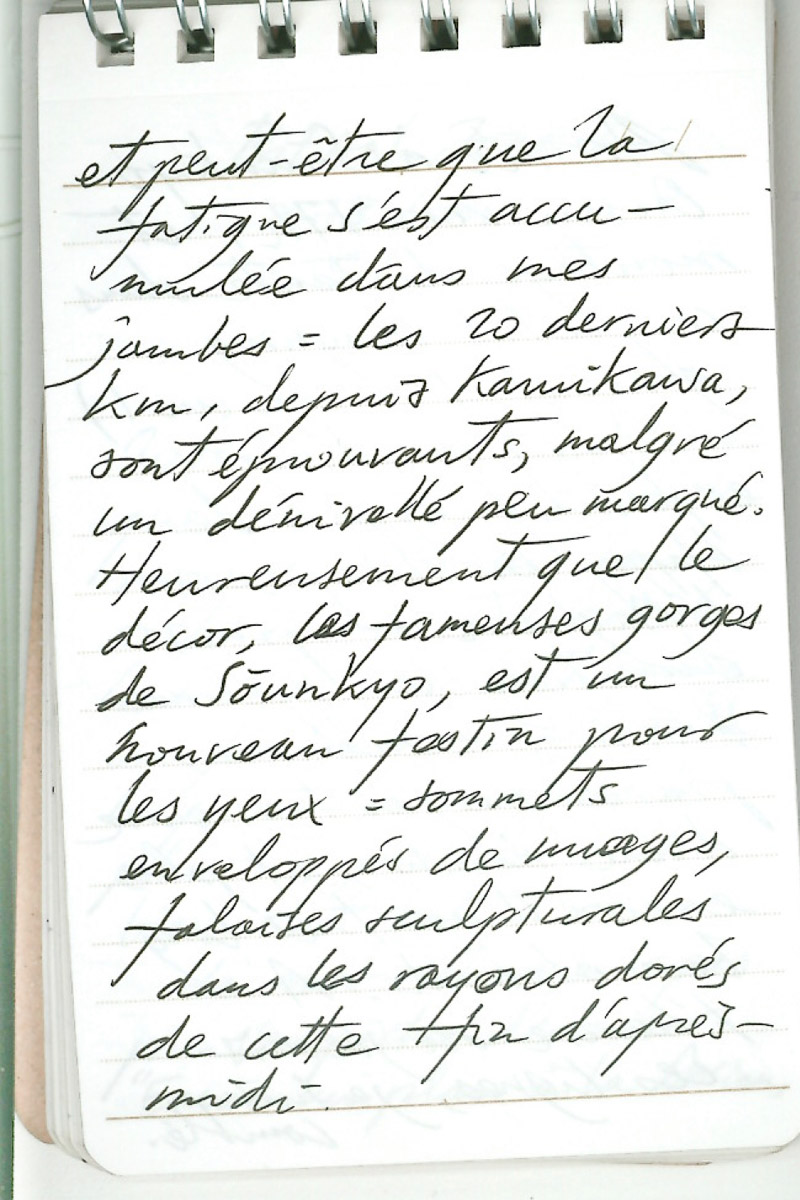 et peut-être que la
fatigue s'est accu-
mulée dans mes
jambes = les 20 derniers
km, depuis Kamikawa,
sont éprouvants, malgré
un dénivellé peu marqué.
Heureusement que le
décor, les fameuses gorges
de Sōunkyo, est un
nouveau festin pour
les yeux = sommets
enveloppés de nuages,
falaises sculpturales
dans les rayons dorés
de cette fin d'après-
midi.